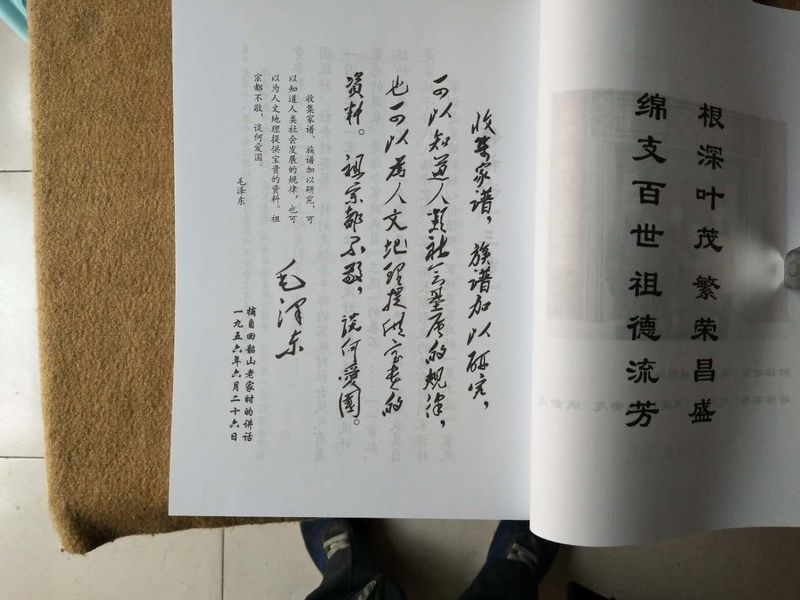 根深叶茂繁荣昌盛
绵支百世祖德流芳
收集家谱，族谱加以研究，
可以知道人類社会发展的规律，
也可以为人文地理提供宝贵的
资料。祖宗都不敬，谈何爱國。
毛泽东
收集家谱、族谱加以研究，可
以知道人类社会发展的规律，也可
以为人文地理提供宝贵的资料。祖
宗都不敬，谈何爱国。
毛泽东
摘自回韶山老家时的讲话
一九五六年六月二十六日